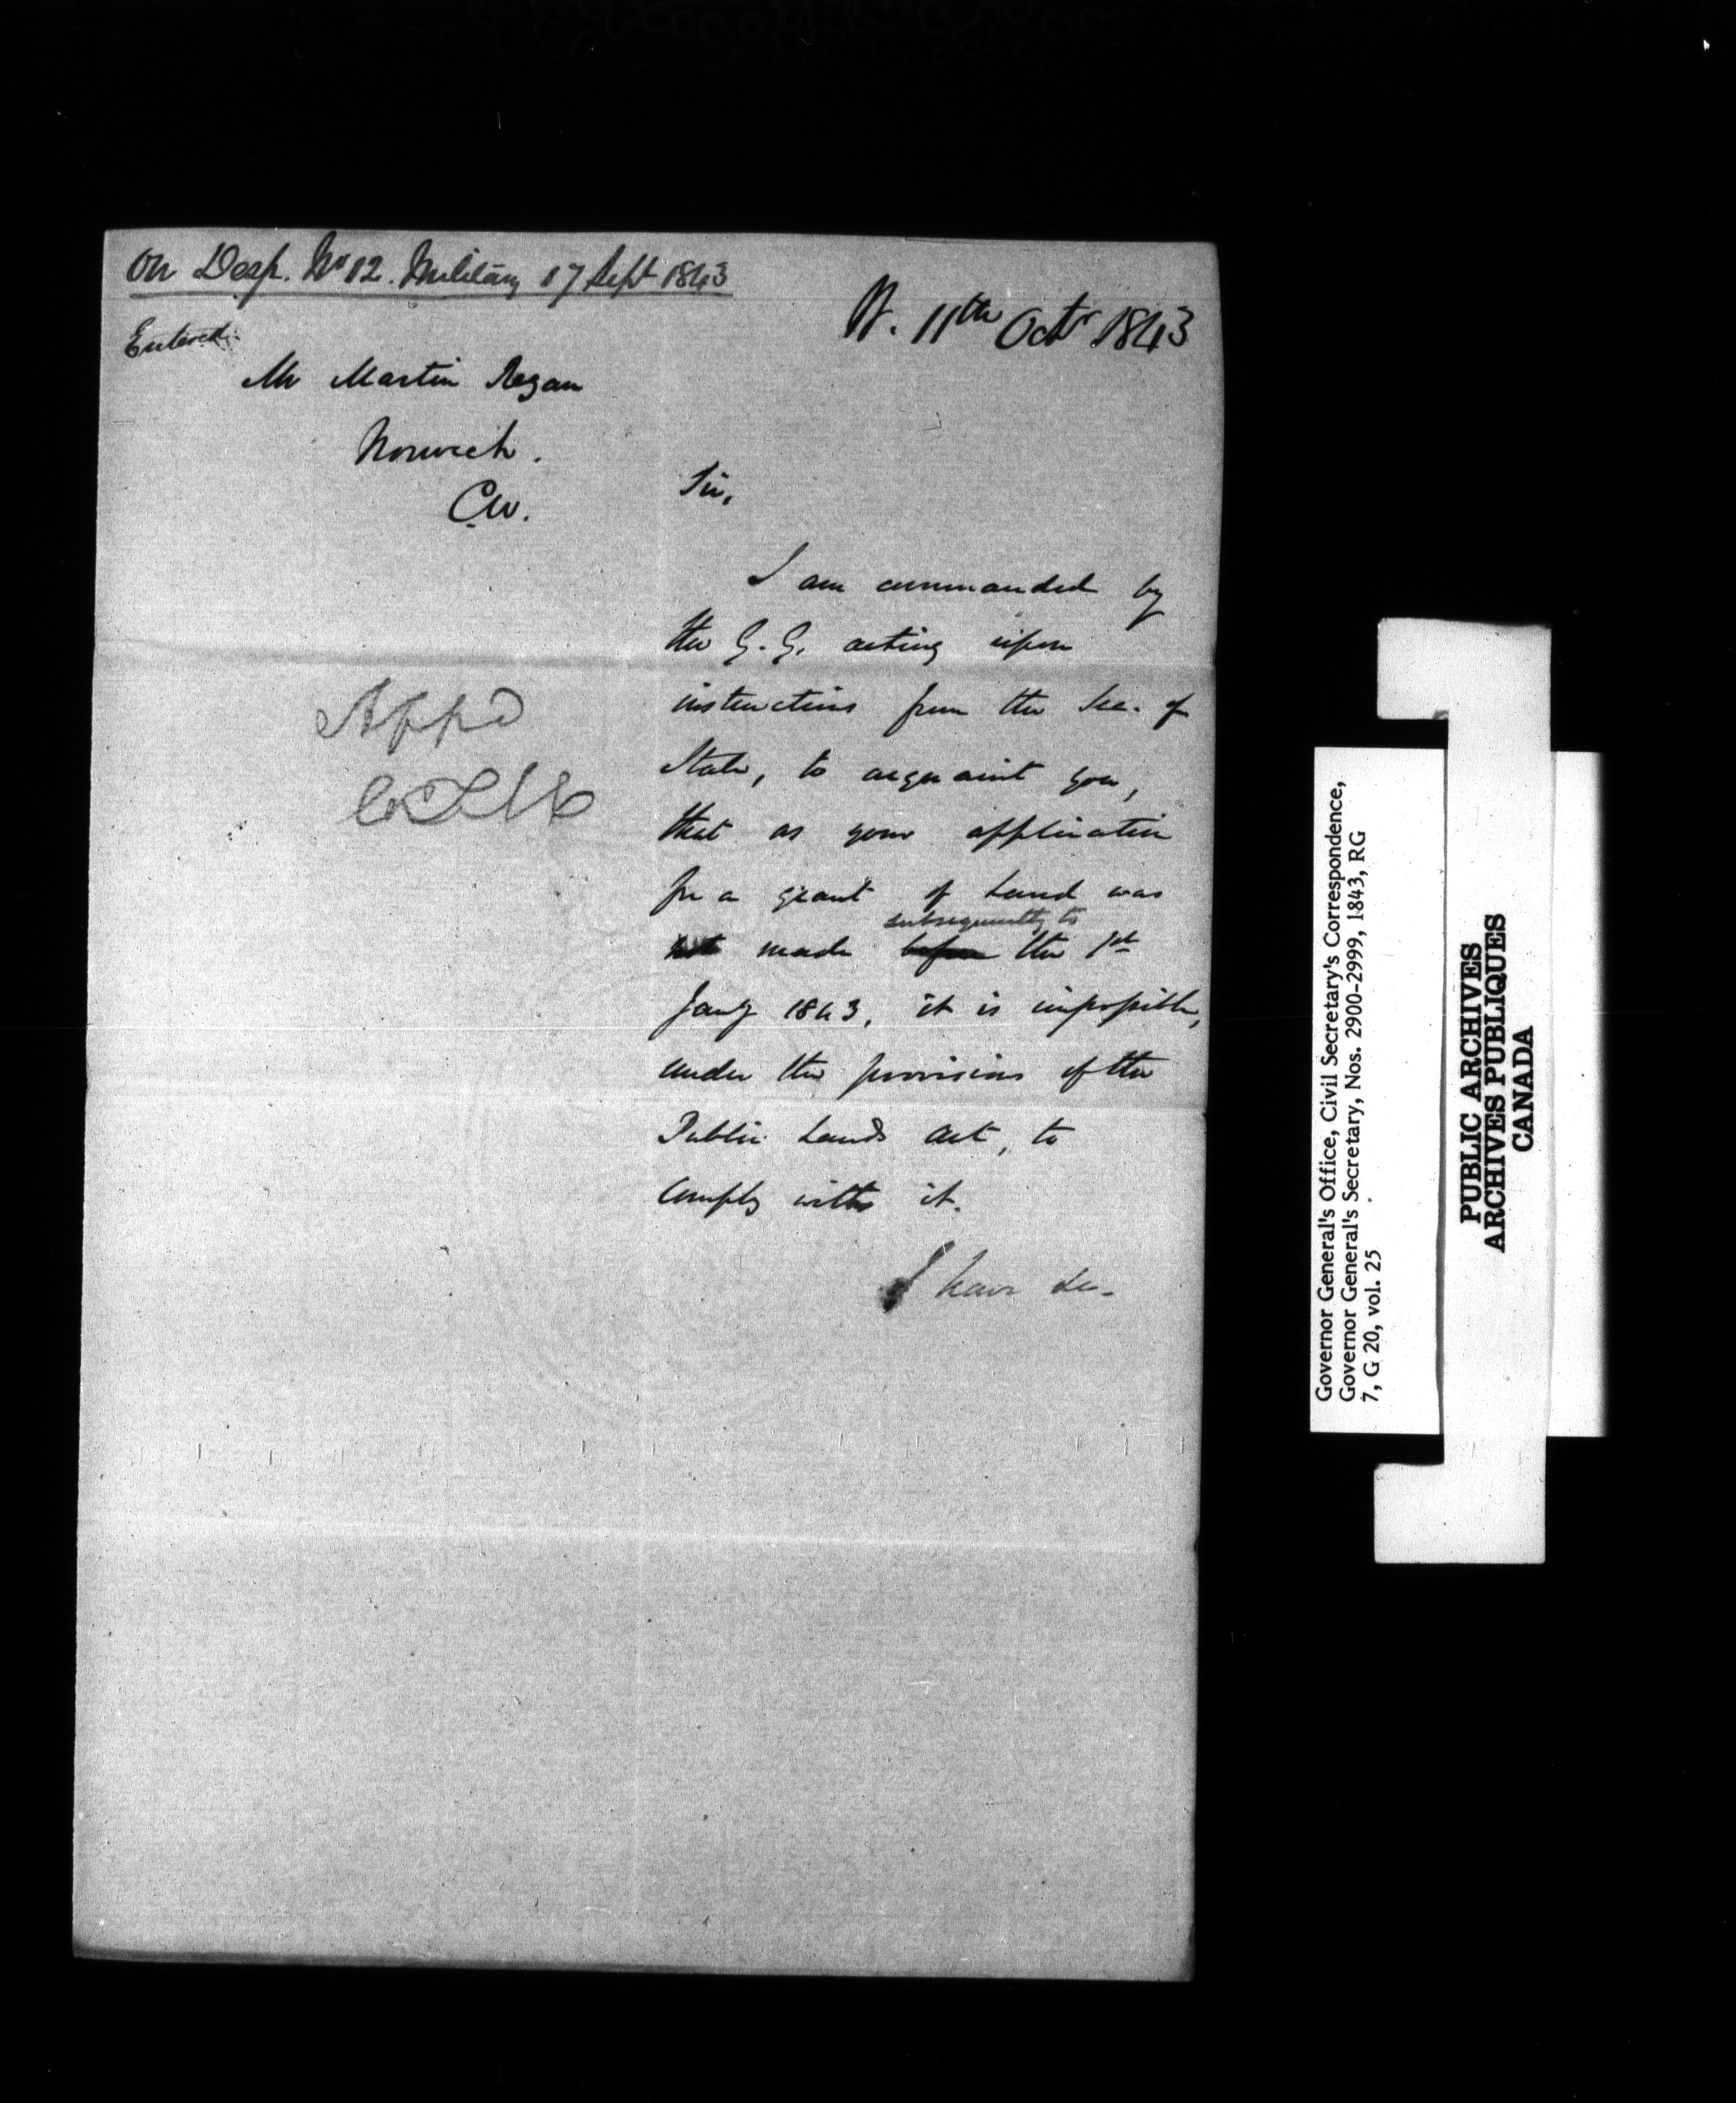 On Desp. No 12. Military 17 Sept 1843
Entered.
11th Octr 1843
Mr Martin Regan
Norwich.
C.W.
Sir,
I am commanded by
the G.G. acting upon
instructions from the Sec. of
State, to acquaint you,
that as your application
for a grant of Land was
subsequently to
not made before the 1st
Jany 1843, it is impossible,
under the provisions of the
Public Lands Act, to
comply with it.
I have &c.
Appd
Governor General's Office, Civil Secretary's Correspondence,
Governor General's Secretary, Nos. 2900-2999, 1843, RG
7, G 20, vol. 25
PUBLIC ARCHIVES
ARCHIVES PUBLIQUES
CANADA